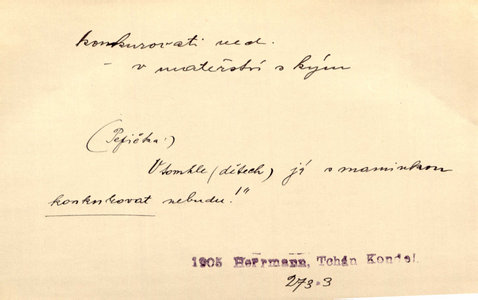 konkurovati ned.
– v mateřství s kým
(Pepička:)
V tomhle (dětech) já s maminkou
konkurovat nebudu!"
1905 Herrmann, Tchán Kondel.
273.3